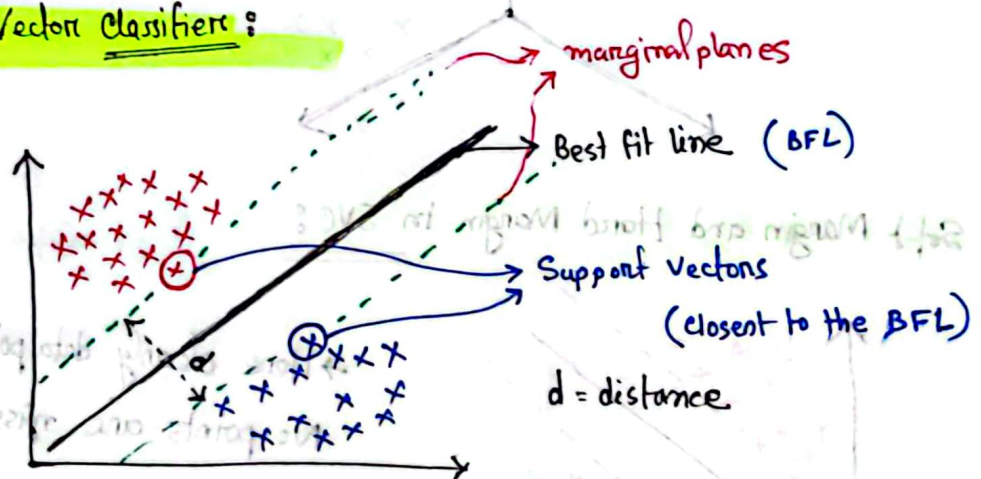 Vector Classifier :
marginal planes
Best fit line (BFL)
Support vectors
(closest to the BFL)
d
d = distance